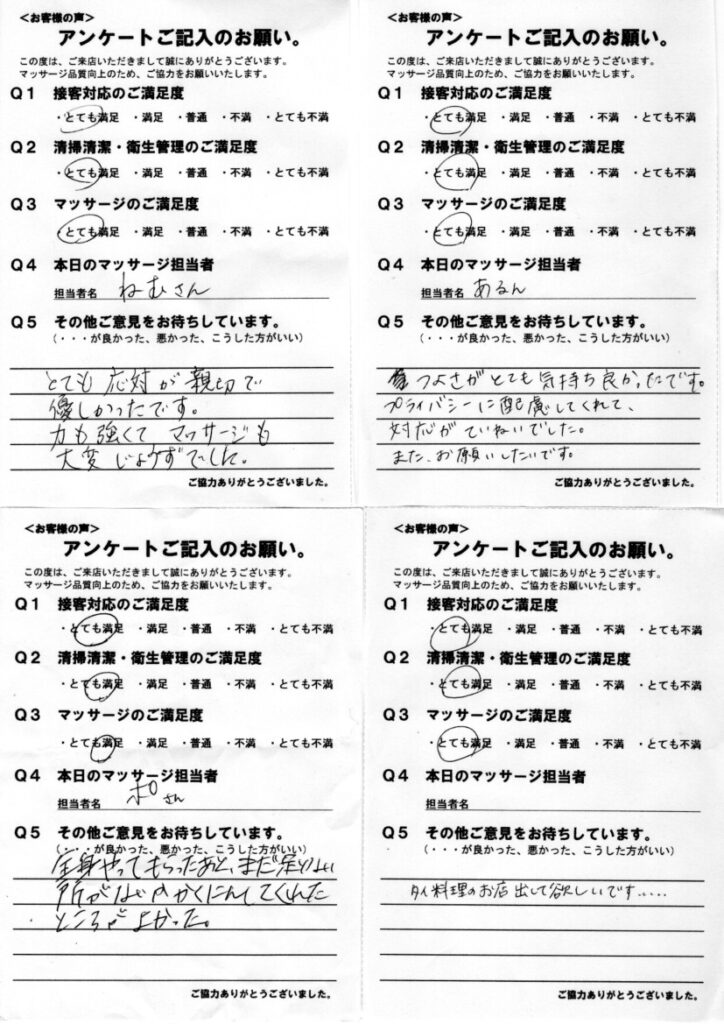 <お客様の声>
アンケートご記入のお願い。
この度は、ご来店いただきまして誠にありがとうございます。
マッサージ品質向上のため、ご協力をお願いいたします。
Q1 接客対応のご満足度
・とても満足 ・満足 ・普通 ・不満 ・とても不満
Q2 清掃清潔・衛生管理のご満足度
・とても満足 ・満足 ・普通 ・不満 ・とても不満
Q3 マッサージのご満足度
・とても満足 ・満足 ・普通 ・不満 ・とても不満
Q4 本日のマッサージ担当者
担当者名 ねむさん
Q5 その他ご意見をお待ちしています。
(・・・が良かった、悪かった、こうした方がいい)
とても応対が親切で
優しかったです。
力も強くてマッサージも
大変じょうずでした。
ご協力ありがとうございました。
<お客様の声>
アンケートご記入のお願い。
この度は、ご来店いただきまして誠にありがとうございます。
マッサージ品質向上のため、ご協力をお願いいたします。
Q1 接客対応のご満足度
・とても満足 ・満足 ・普通 ・不満 ・とても不満
Q2 清掃清潔・衛生管理のご満足度
・とても満足 ・満足 ・普通 ・不満 ・とても不満
Q3 マッサージのご満足度
・とても満足 ・満足 ・普通 ・不満 ・とても不満
Q4 本日のマッサージ担当者
担当者名 あるん
Q5 その他ご意見をお待ちしています。
(・・・が良かった、悪かった、こうした方がいい)
つよさがとても気持ち良かったです。
プライバシーに配慮してくれて、
対応がていねいでした。
また、お願いしたいです。
ご協力ありがとうございました。
<お客様の声>
アンケートご記入のお願い。
この度は、ご来店いただきまして誠にありがとうございます。
マッサージ品質向上のため、ご協力をお願いいたします。
Q1 接客対応のご満足度
・とても満足 ・満足 ・普通 ・不満 ・とても不満
Q2 清掃清潔・衛生管理のご満足度
・とても満足 ・満足 ・普通 ・不満 ・とても不満
Q3 マッサージのご満足度
・とても満足 ・満足 ・普通 ・不満 ・とても不満
Q4 本日のマッサージ担当者
担当者名 ポさん
Q5 その他ご意見をお待ちしています。
(・・・が良かった、悪かった、こうした方がいい)
全身やってもらったあと、まだ足りない
所がないかかくにんしてくれた
ところがよかった。
ご協力ありがとうございました。
<お客様の声>
アンケートご記入のお願い。
この度は、ご来店いただきまして誠にありがとうございます。
マッサージ品質向上のため、ご協力をお願いいたします。
Q1 接客対応のご満足度
・とても満足 ・満足 ・普通 ・不満 ・とても不満
Q2 清掃清潔・衛生管理のご満足度
・とても満足 ・満足 ・普通 ・不満 ・とても不満
Q3 マッサージのご満足度
・とても満足 ・満足 ・普通 ・不満 ・とても不満
Q4 本日のマッサージ担当者
担当者名
Q5 その他ご意見をお待ちしています。
(・・・が良かった、悪かった、こうした方がいい)
タイ料理のお店出して欲しいです.....
ご協力ありがとうございました。